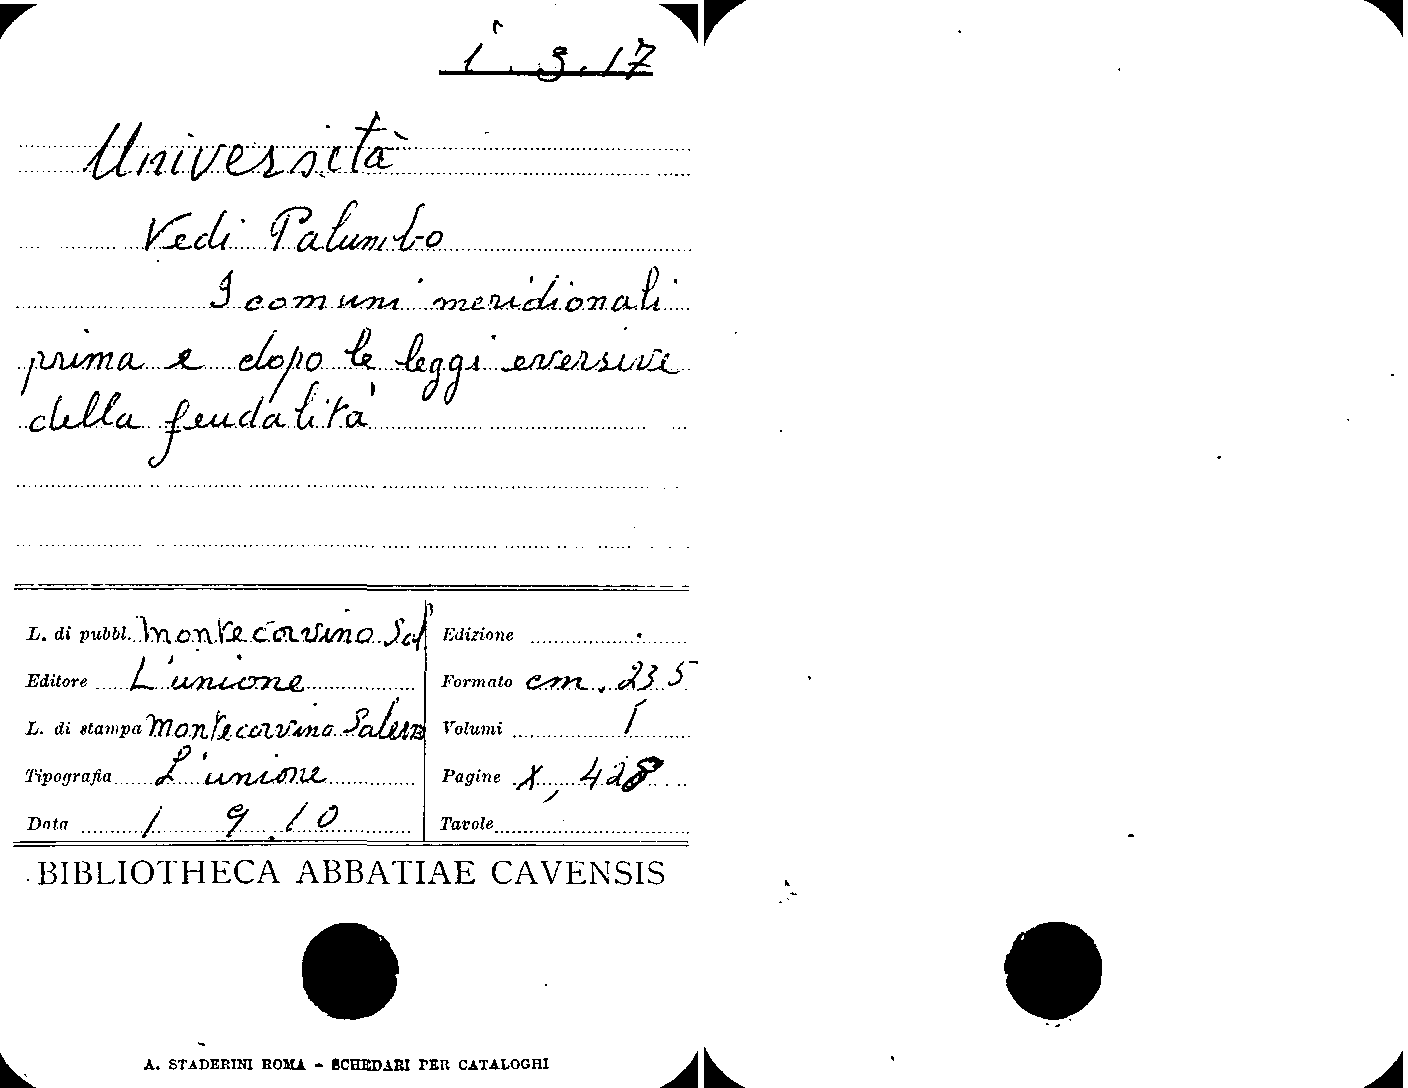 1. 3. 17
Università
Vedi Palumbo
I comuni meridionali
prima e dopo le leggi eversive
della feudalità
L. di pubbl. Montecorvino Sal
Edizione
Editore L'unione
Formato cm. 23 5
L. di stampa Montecorvino Salern
Volumi 1
Tipografia L'unione
Pagine X, 428
Data 1910
Tavole
BIBLIOTHECA ABBATIAE CAVENSIS
A. STADERINI ROMA - SCHEDARI PER CATALOGHI